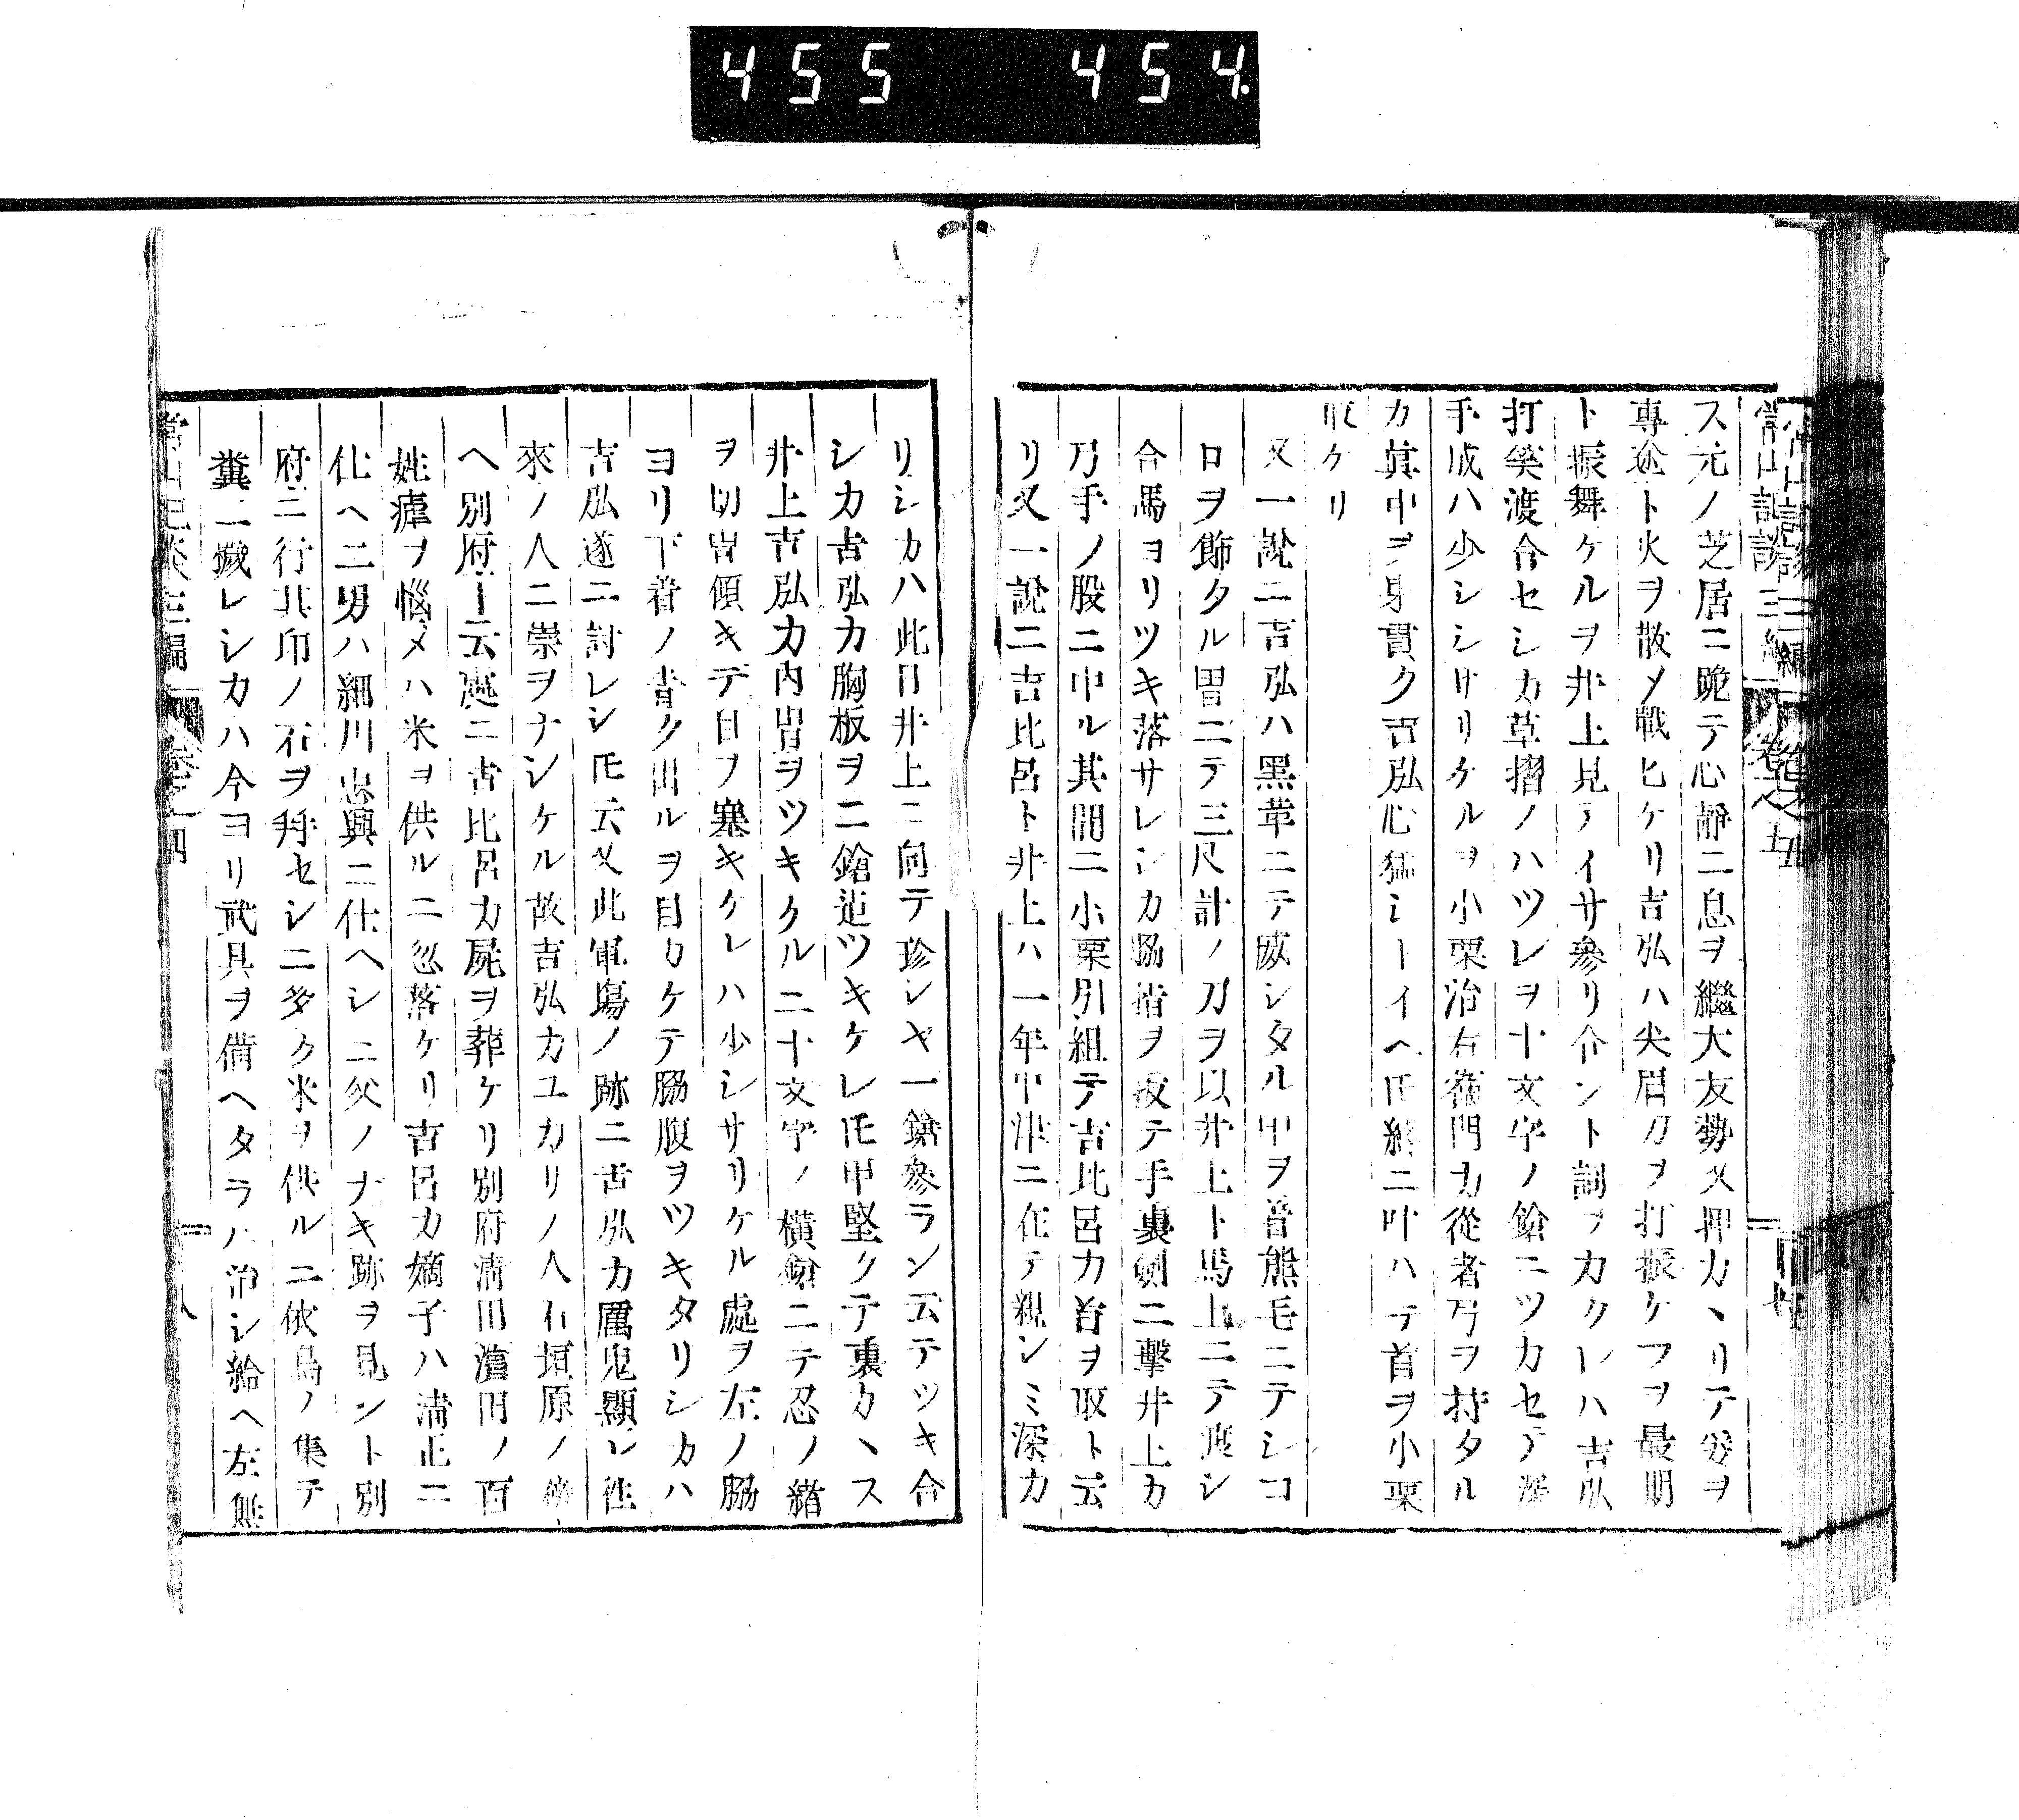 455 454
ス元ノ芝居ニ跪テ心靜ニ息ヲ繼大友勢又押カヽリテ爰ヲ
專途ト火ヲ散メ戰ヒケリ吉弘ハ尖眉刀ヲ打振ケフヲ最期
ト振舞ケルヲ井上見テイサ參リ合ント詞ヲカクレハ吉弘
打笑渡合セシカ草摺ノハツレヲ十文字ノ鎗ニツカセテ深
手成ハ少シシサリケルヲ小栗治右衞門カ從者弓ヲ持タル
カ眞中ヲ射貫ク吉弘心猛シトイヘ𪜈終ニ叶ハテ首ヲ小栗
取ケリ
又一說ニ吉弘ハ黑革ニテ威シタル甲ヲ着熊毛ニテシコ
ロヲ飾タル冑ニテ三尺計ノ刀ヲ以井上ト馬上ニテ渡シ
合馬ヨリツキ落サレシカ脇指ヲ拔テ手裏劒ニ擊井上カ
乃手ノ股ニ中ル其間ニ小栗引組テ吉比呂カ首ヲ取ト云
リ又一說ニ吉比呂ト井上ハ一年中津ニ在テ親シミ深カ
リシカハ此日井上ニ向テ珍シヤ一鎗參ラン云テツキ合
シカ吉弘カ胸板ヲ二鎗迠ツキケレ𪜈甲堅クテ裏カヽス
井上吉弘カ內冑ヲツキクルニ十文字ノ橫鎗ニテ忍ノ緖
ヲ切冑傾キテ目ヲ塞キケレハ少シサリケル處ヲ左ノ脇
ヨリ下着ノ靑ク出ルヲ目カケテ脇腹ヲツキタリシカハ
吉弘遂ニ討レシ𪜈云又此軍塲ノ跡ニ吉弘カ厲鬼顯レ徃
來ノ人ニ崇ヲナシケル故吉弘カユカリノ人石垣原ノ
ヘ別府ト云處ニ吉比呂カ屍ヲ葬ケリ別府淸田濱田ノ百
姓瘧ヲ惱メハ米ヲ供ルニ忽落ケリ吉呂カ嫡子ハ淸正ニ
仕ヘ二男ハ細川忠興ニ仕ヘシニ父ノナキ跡ヲ見ント別
府ニ行其印ノ石ヲ拜セシニ多ク米ヲ供ルニ依鳥ノ集テ
糞ニ穢レシカハ今ヨリ武具ヲ備ヘタラハ治シ給ヘ左無